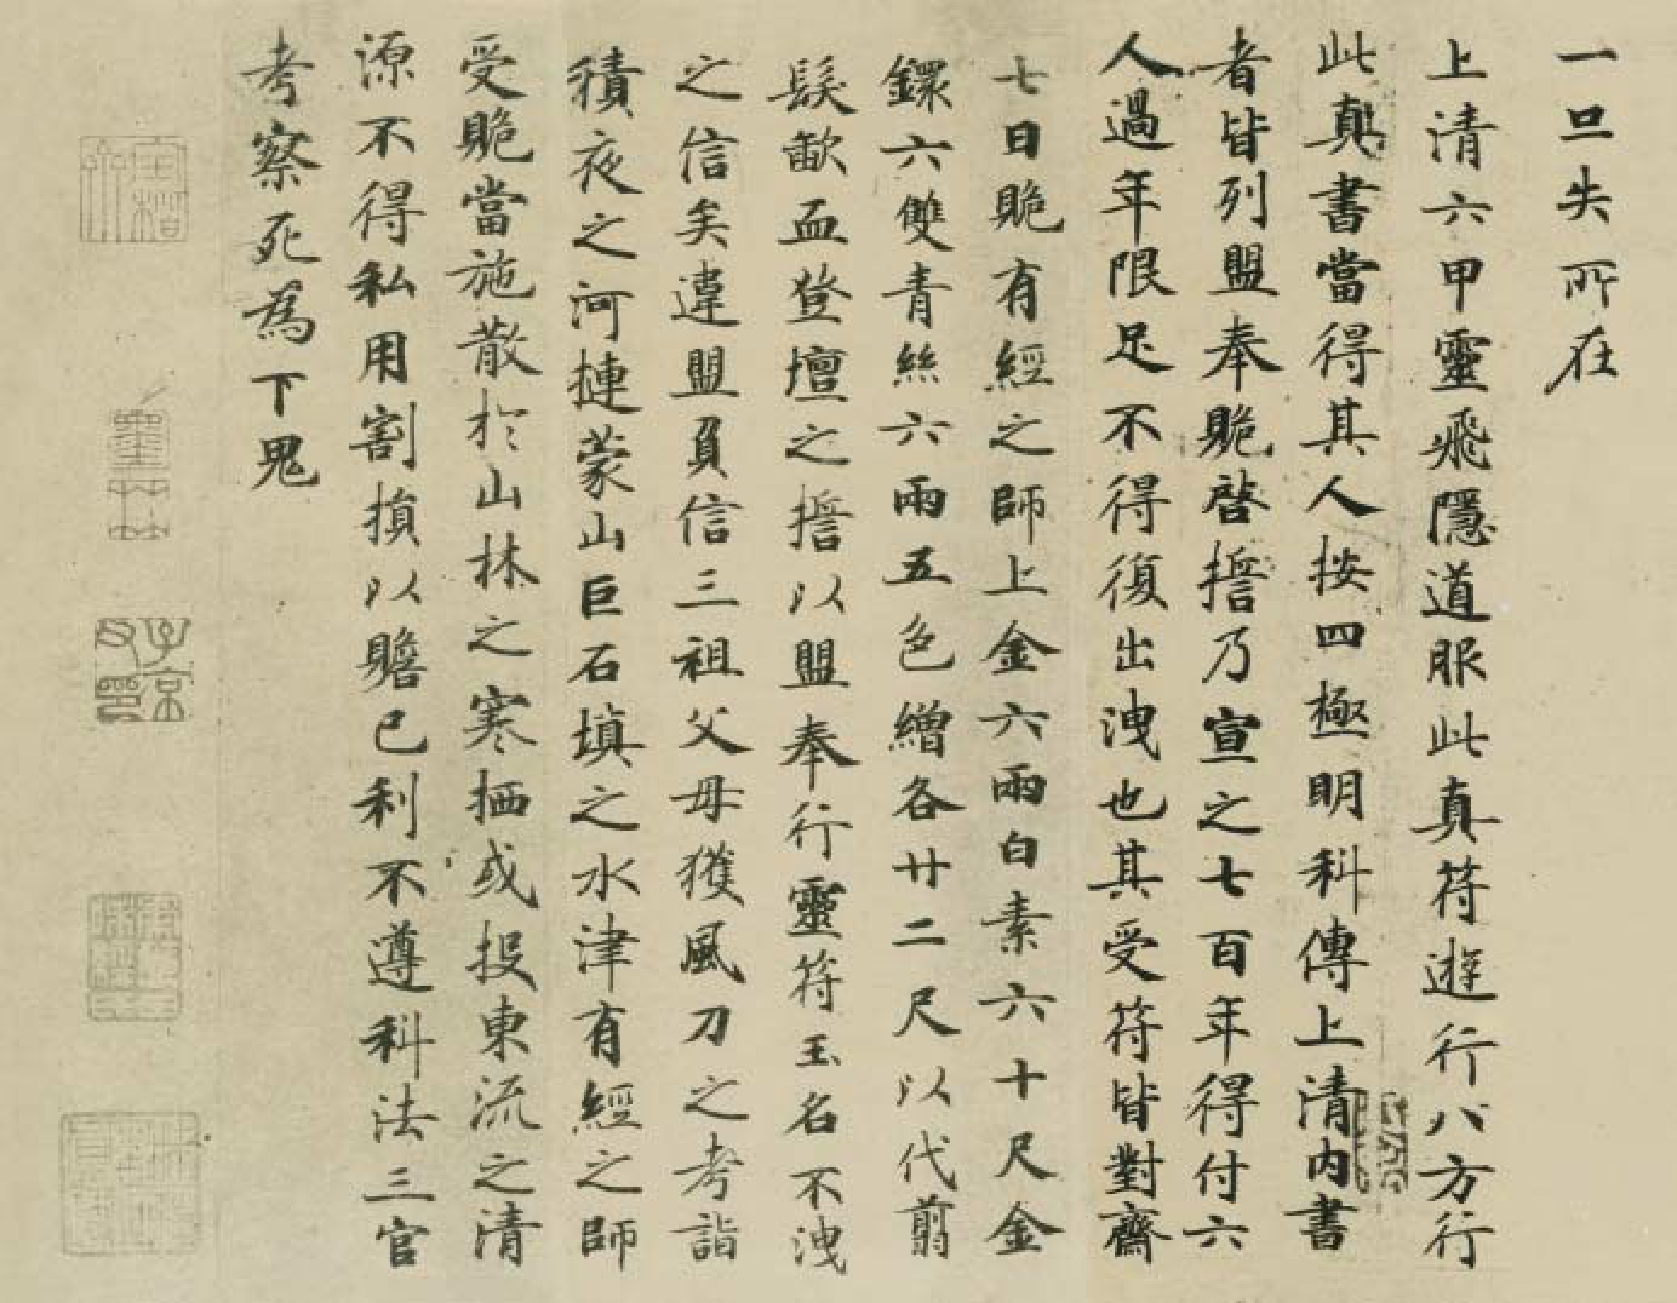 一旦失所在
上清六甲靈飛隱道服此真符遊行八方行
此真書當得其人按四極明科傳上清内書
者皆列盟奉䞈啓擔乃宣之七百年得付六
人過年限足不得復出洩也其受符皆對齋
七日䞈有經之師上金六兩白素六十尺金
鐶六雙青絲六兩五色繒各廿二尺以代翦
髮歃血登壇之擔以盟奉行靈符玉名不洩
之信矣違盟負信三祖父母獲風刀之考詣
積夜之河摙蒙山巨石填之水津有經之師
受䞈當施散於山林之寒栖或投東流之清
源不得私用割損以贍己利不遵科法三官
考察死為下鬼